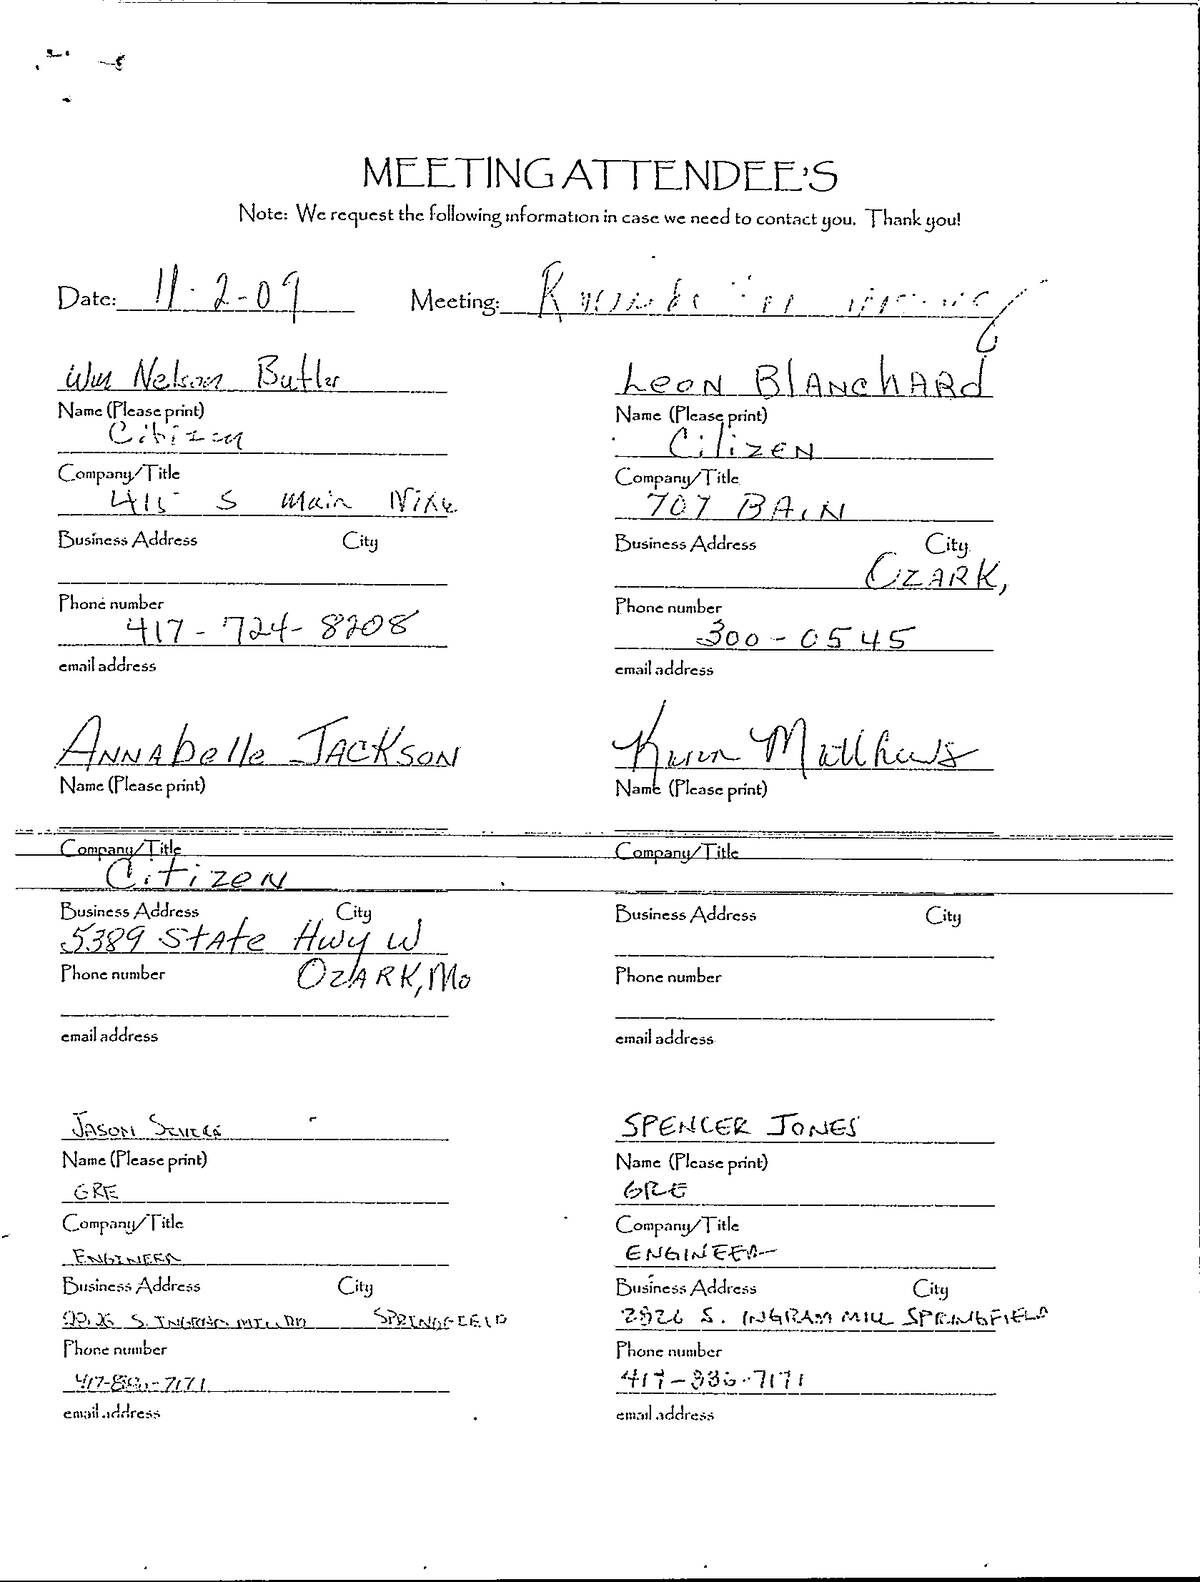 MEETING ATTENDEE'S
Note: We request the following information in case we need to contact you. Thank you!
Date: 11-2-09 Meeting:
Wm Nelson Butler
Name (Please print)
Citizen
Company/Title
415 S Main Nixa
Business Address City
Phone number
417-724-8208
email address
Leon BlanchARd
Name (Please print)
Citizen
Company/Title
707 BAIN
Business Address City
OZARK,
Phone number
300-0545
email address
ANNAbelle JACKSON
Name (Please print)
Company/Title
Citizen
Business Address City
5389 State Hwy W
Phone number OZARK, Mo
email address
Karen Matthews
Name (Please print)
Company/Title
Business Address City
Phone number
email address
JASON
Name (Please print)
GRE
Company/Title
ENGINEER
Business Address City
S. INGRAM MILL RD SPRINGFIELD
Phone number
email address
SPENCER JONES
Name (Please print)
GRE
Company/Title
ENGINEER
Business Address City
2826 S. INGRAM MILL SPRINGFIELD
Phone number
417-886-7171
email address